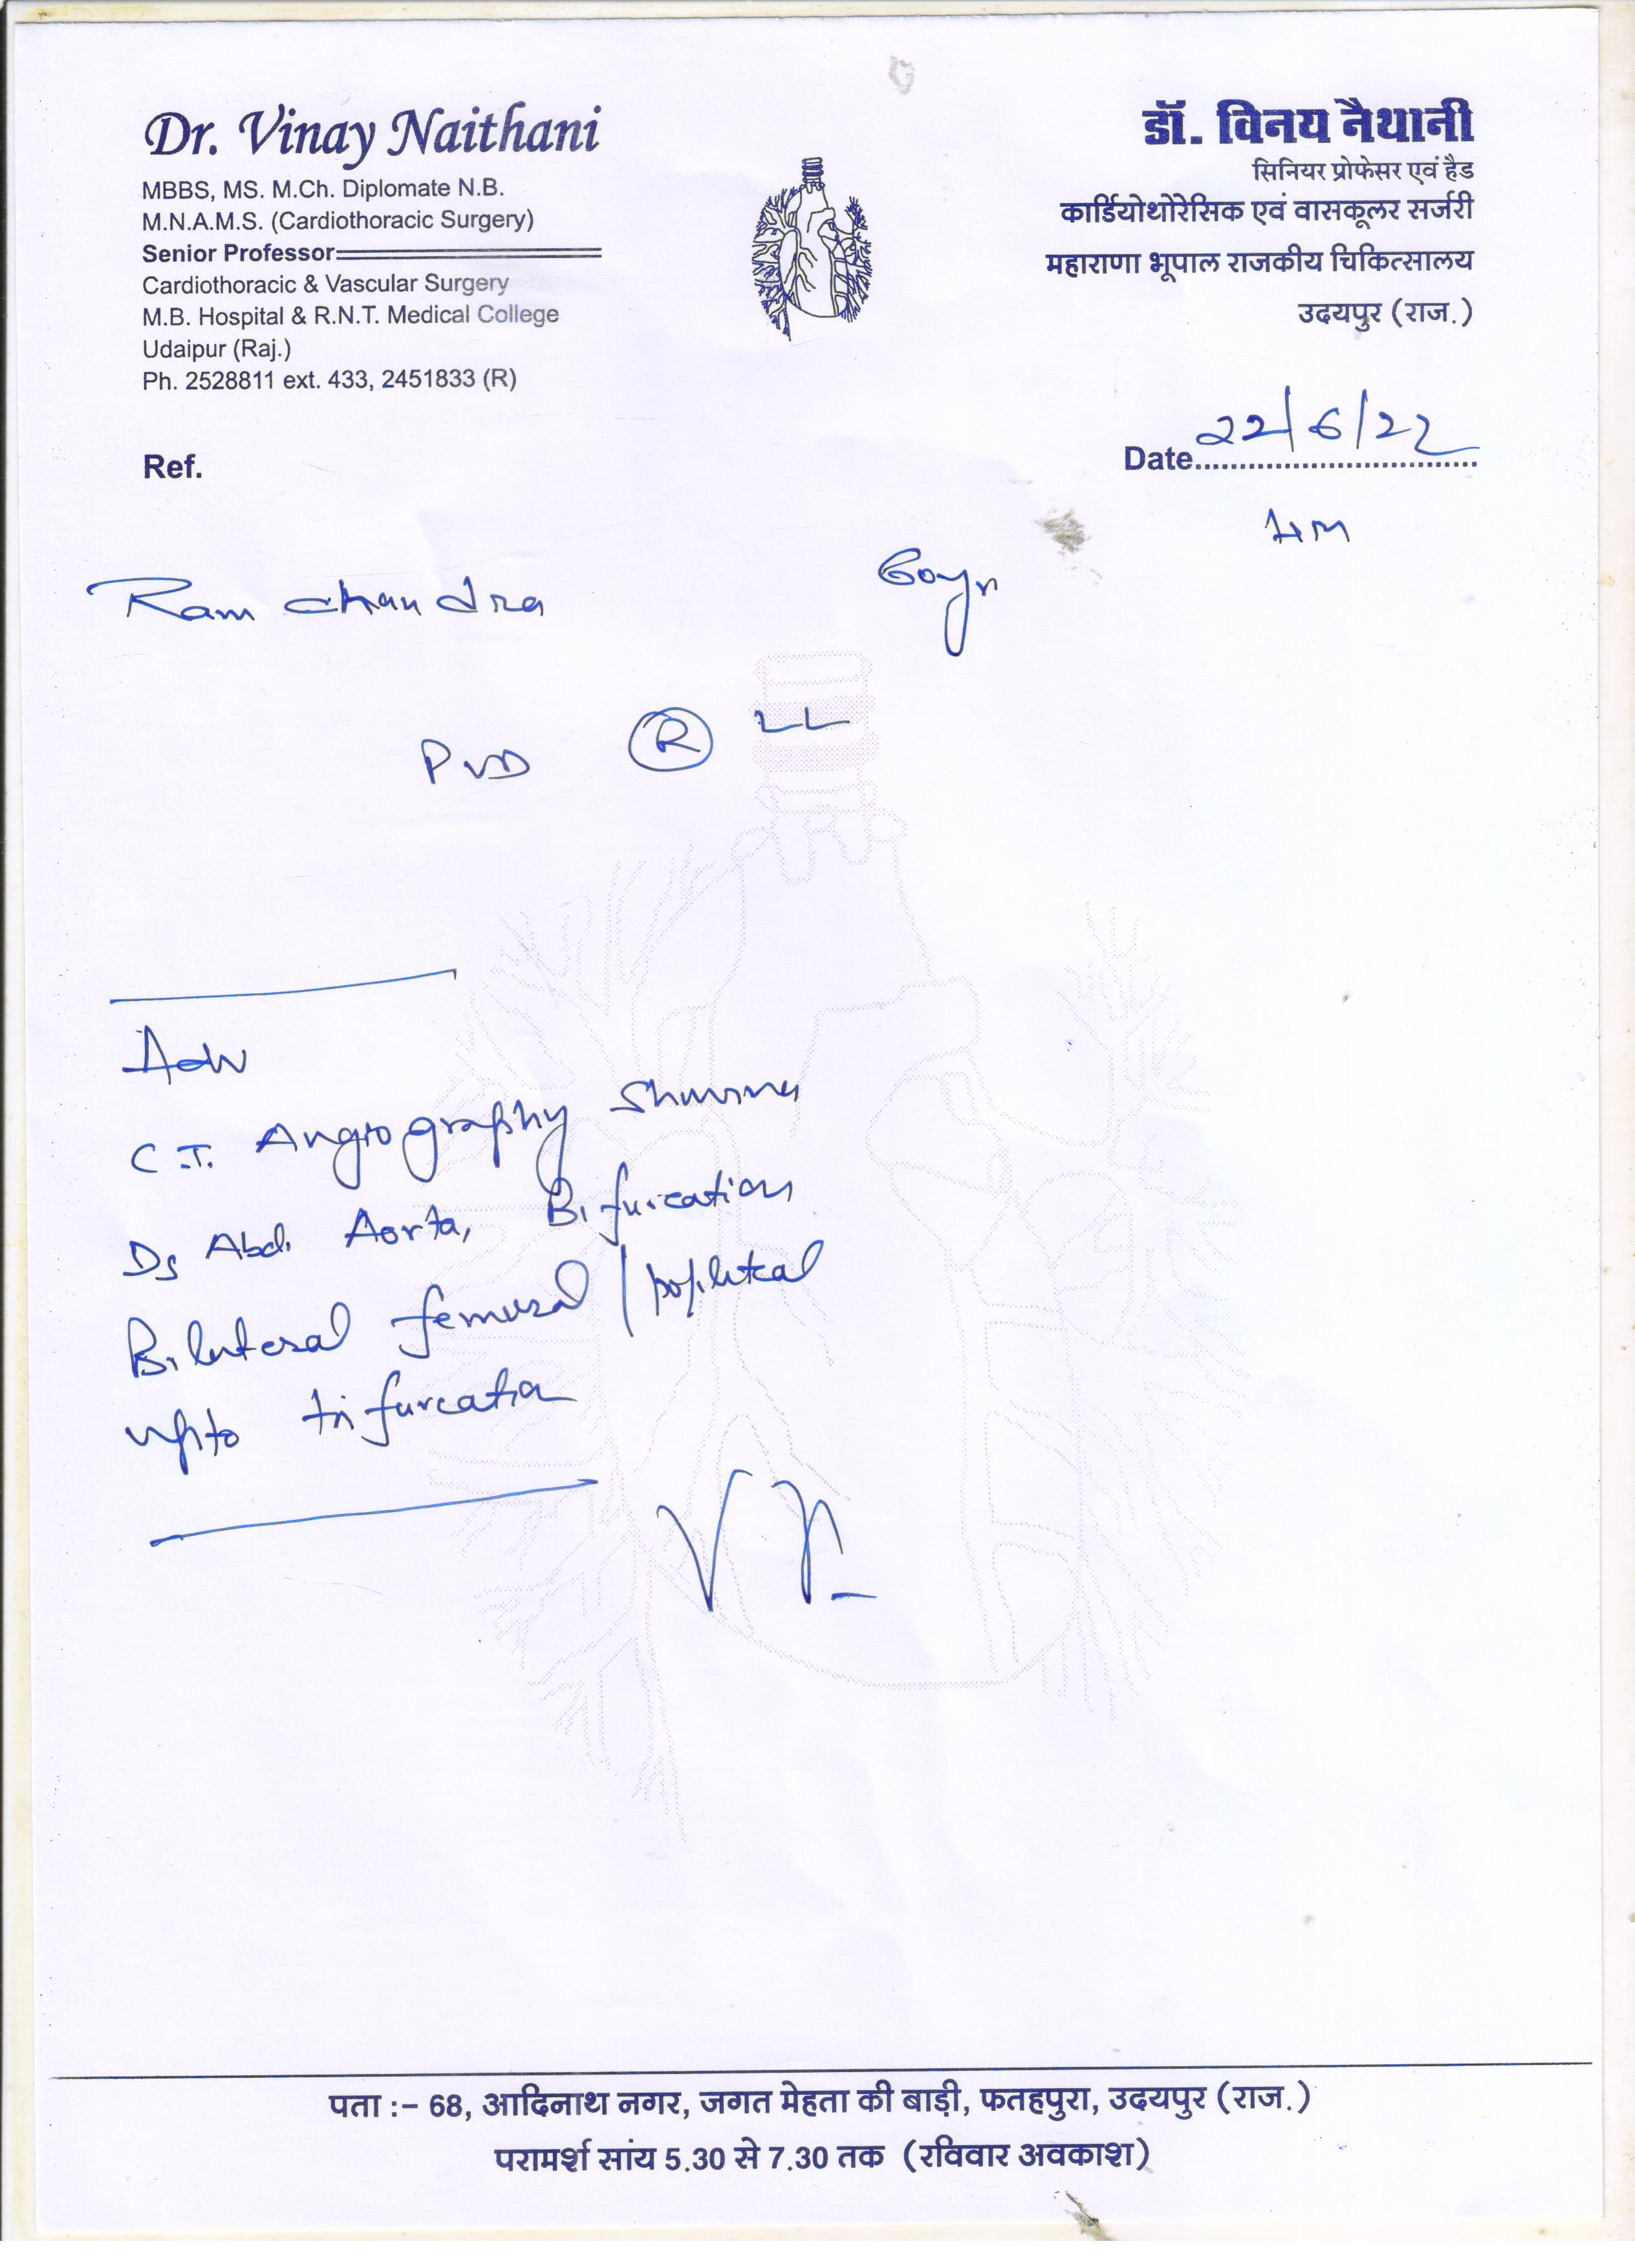 Dr. Vinay Naithani
MBBS, MS. M.Ch. Diplomate N.B.
M.N.A.M.S. (Cardiothoracic Surgery)
Senior Professor
Cardiothoracic & Vascular Surgery
M.B. Hospital & R.N.T. Medical College
Udaipur (Raj.)
Ph. 2528811 ext. 433, 2451833 (R)
डॉ. विनय नैथानी
सिनियर प्रोफेसर एवं हैड
कार्डियोथोरेसिक एवं वासकूलर सर्जरी
महाराणा भूपाल राजकीय चिकित्सालय
उदयपुर (राज.)
Ref.
Date 22/6/22
Ram chandra 60yr
PVD R LL
Adv
C.T. Angiography
Ds Abd. Aorta, Bifurcation
Bilateral femoral / popliteal
upto trifurcation
पता :– 68, आदिनाथ नगर, जगत मेहता की बाड़ी, फतहपुरा, उदयपुर (राज.)
परामर्श सांय 5.30 से 7.30 तक (रविवार अवकाश)